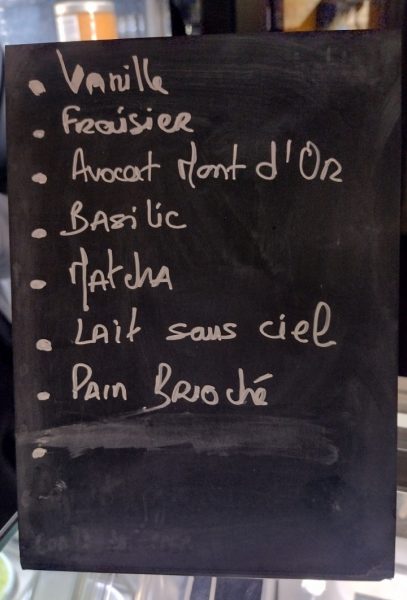 • Vanille
• Fraisier
• Avocat Mont d'Or
• Basilic
• Matcha
• Lait sans ciel
• Pain Brioché
•